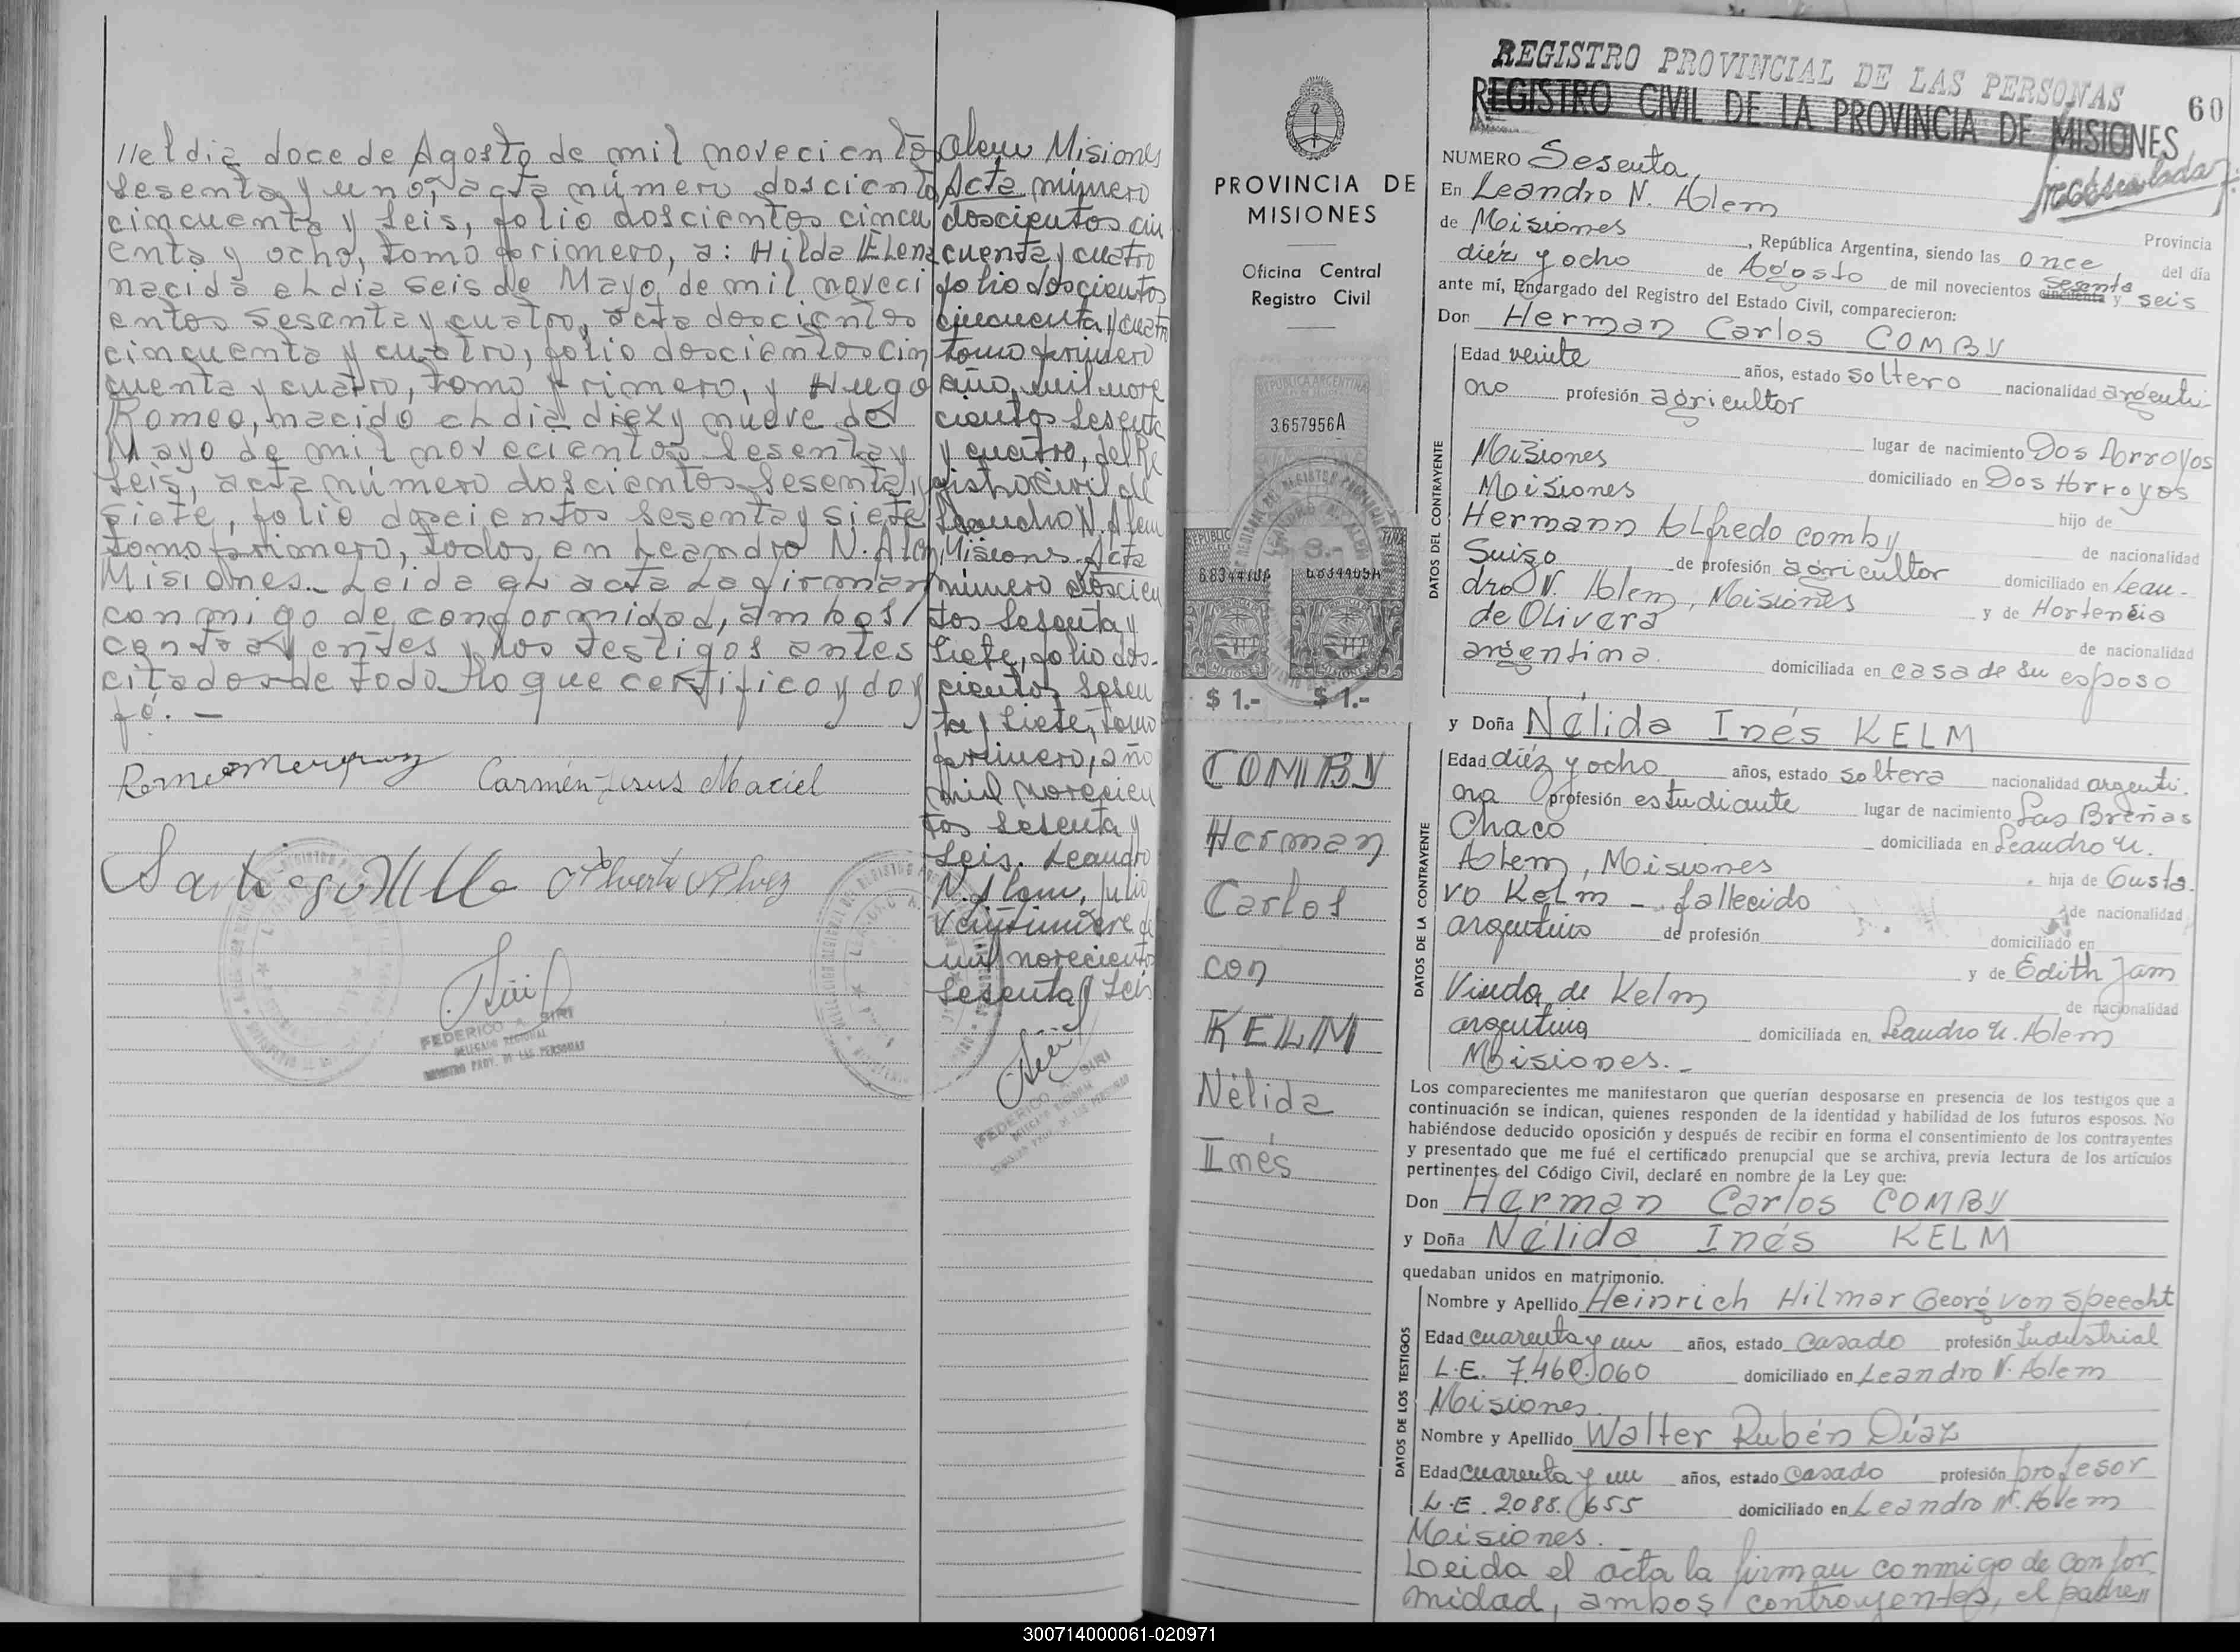 //el dia doce de Agosto de mil novecientos
sesenta y uno, acta número doscientos
cincuenta y seis, folio doscientos cincu
enta y ocho, tomo primero, a: Hilda Elena
nacida el dia seis de Mayo de mil noveci
entos sesenta y cuatro, acta doscientos
cincuenta y cuatro, folio doscientos cin
cuenta y cuatro, tomo primero, y Hugo
Romeo, nacido el dia diez y nueve de
Mayo de mil novecientos sesenta y
seis, acta número doscientos sesenta y
siete, folio doscientos sesenta y siete
tomo primero, todos en Leandro N. Alem
Misiones. Leida el acta la firman
conmigo de conformidad, ambos/
contrayentes y los testigos antes
citados de todo lo que certifico y doy
fé. -
Carmen Jesus Maciel
FEDERICO A. SIRI
DELEGADO REGIONAL
REGISTRO PROV. DE LAS PERSONAS
Alem Misiones
Acta número
doscientos cin
cuenta y cuatro
folio doscientos
cincuenta y cuatro
tomo primero
año mil nove
cientos sesenta
y cuatro, del Re
gistro Civil de
Leandro N. Alem
Misiones. Acta
número doscien
tos sesenta y
siete, folio dos-
cientos sesen
ta y siete, tomo
primero, año
mil novecien
tos sesenta y
seis. Leandro
N. Alem, julio
veintinueve de
mil novecientos
sesenta y seis
FEDERICO A. SIRI
PROVINCIA DE
MISIONES
Oficina Central
Registro Civil
REPUBLICA ARGENTINA
3657956A
6834405A
$ 1.- $ 1.-
COMBY
Herman
Carlos
con
KELM
Nélida
Inés
REGISTRO PROVINCIAL DE LAS PERSONAS
REGISTRO CIVIL DE LA PROVINCIA DE MISIONES
60
NUMERO Sesenta
En Leandro N. Alem
Provincia
de Misiones, República Argentina, siendo las once del día
diéz y ocho de Agosto de mil novecientos cincuenta sesenta y seis
ante mí, Encargado del Registro del Estado Civil, comparecieron:
Don Herman Carlos COMBY
DATOS DEL CONTRAYENTE
Edad veinte años, estado soltero nacionalidad argenti-
no profesión agricultor
lugar de nacimiento Dos Arroyos
Misiones
domiciliado en Dos Arroyos
Misiones
hijo de
Hermann Alfredo Comby
de nacionalidad
Suizo de profesión agricultor domiciliado en Lean-
dro N. Alem, Misiones y de Hortensia
de Olivera
de nacionalidad
argentina. domiciliada en casa de su esposo
y Doña Nélida Inés KELM
DATOS DE LA CONTRAYENTE
Edad diéz y ocho años, estado soltera nacionalidad argenti-
na profesión estudiante lugar de nacimiento Las Breñas
Chaco domiciliada en Leandro N.
Alem, Misiones hija de Gusta-
vo Kelm - fallecido
de nacionalidad
argentino de profesión domiciliado en
y de Edith Jam
Viuda de Kelm
de nacionalidad
argentina domiciliada en Leandro N. Alem
Misiones.-
Los comparecientes me manifestaron que querían desposarse en presencia de los testigos que a
continuación se indican, quienes responden de la identidad y habilidad de los futuros esposos. No
habiéndose deducido oposición y después de recibir en forma el consentimiento de los contrayentes
y presentado que me fué el certificado prenupcial que se archiva, previa lectura de los artículos
pertinentes del Código Civil, declaré en nombre de la Ley que:
Don Herman Carlos COMBY
y Doña Nélida Inés KELM
quedaban unidos en matrimonio.
DATOS DE LOS TESTIGOS
Nombre y Apellido Heinrich Hilmar Georg von Speecht
Edad cuarenta y un años, estado casado profesión Industrial
L.E. 7.460.060 domiciliado en Leandro N. Alem
Misiones.
Nombre y Apellido Walter Rubén Díaz
Edad cuarenta y un años, estado casado profesión profesor
L.E. 2088.655 domiciliado en Leandro N. Alem
Misiones. -
Leida el acta la firman conmigo de confor
midad, ambos contrayentes, el padre//
300714000061-020971